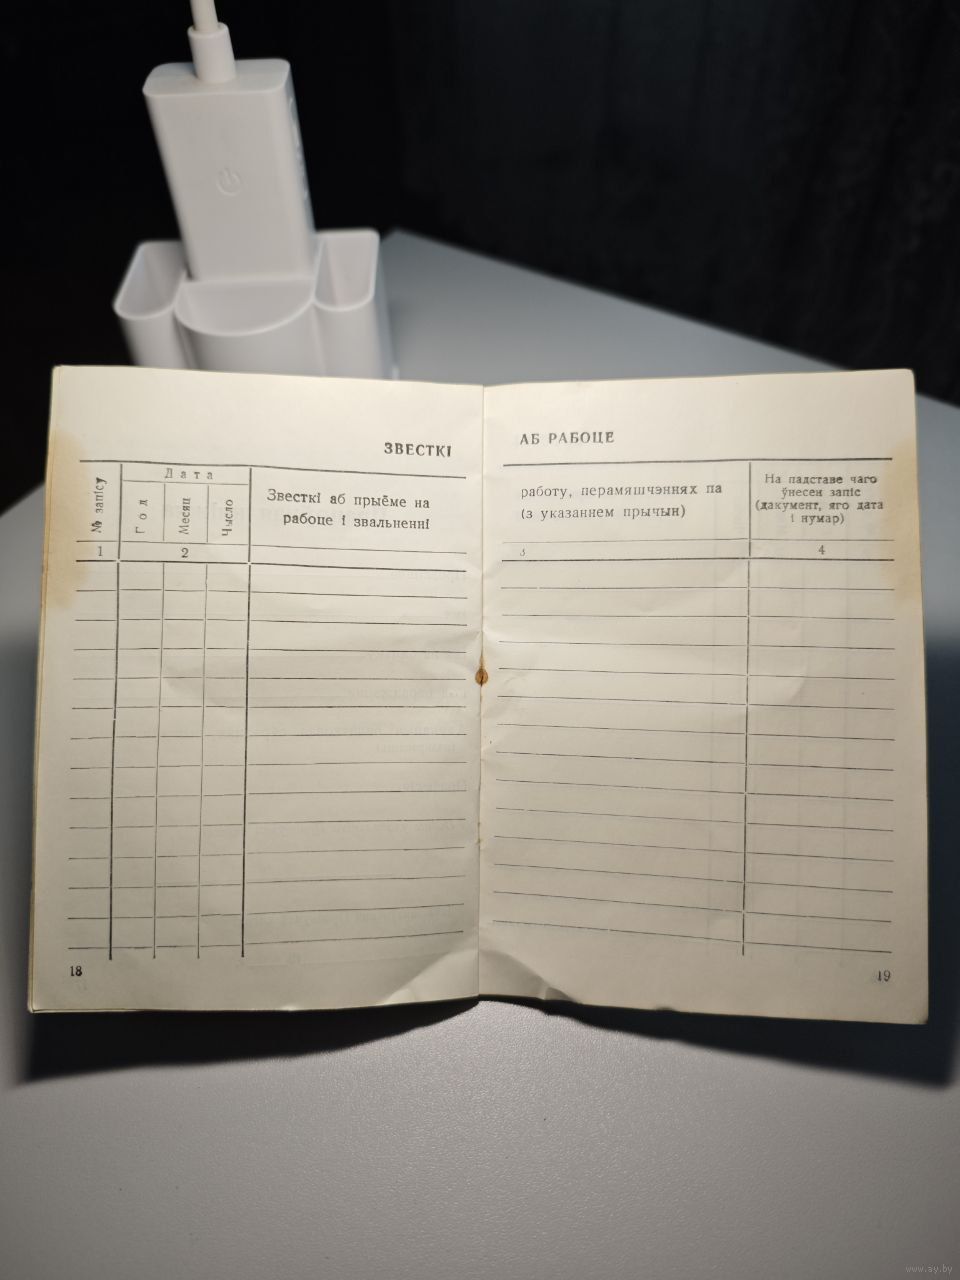 ЗВЕСТКІ
№ запісу
Дата
Год
Месяц
Чысло
Звесткі аб прыёме на
рабоце і звальненні
1
2
18
АБ РАБОЦЕ
работу, перамяшчэннях па
(з указаннем прычын)
На падставе чаго
ўнесен запіс
(дакумент, яго дата
і нумар)
3
4
19
www.ay.by